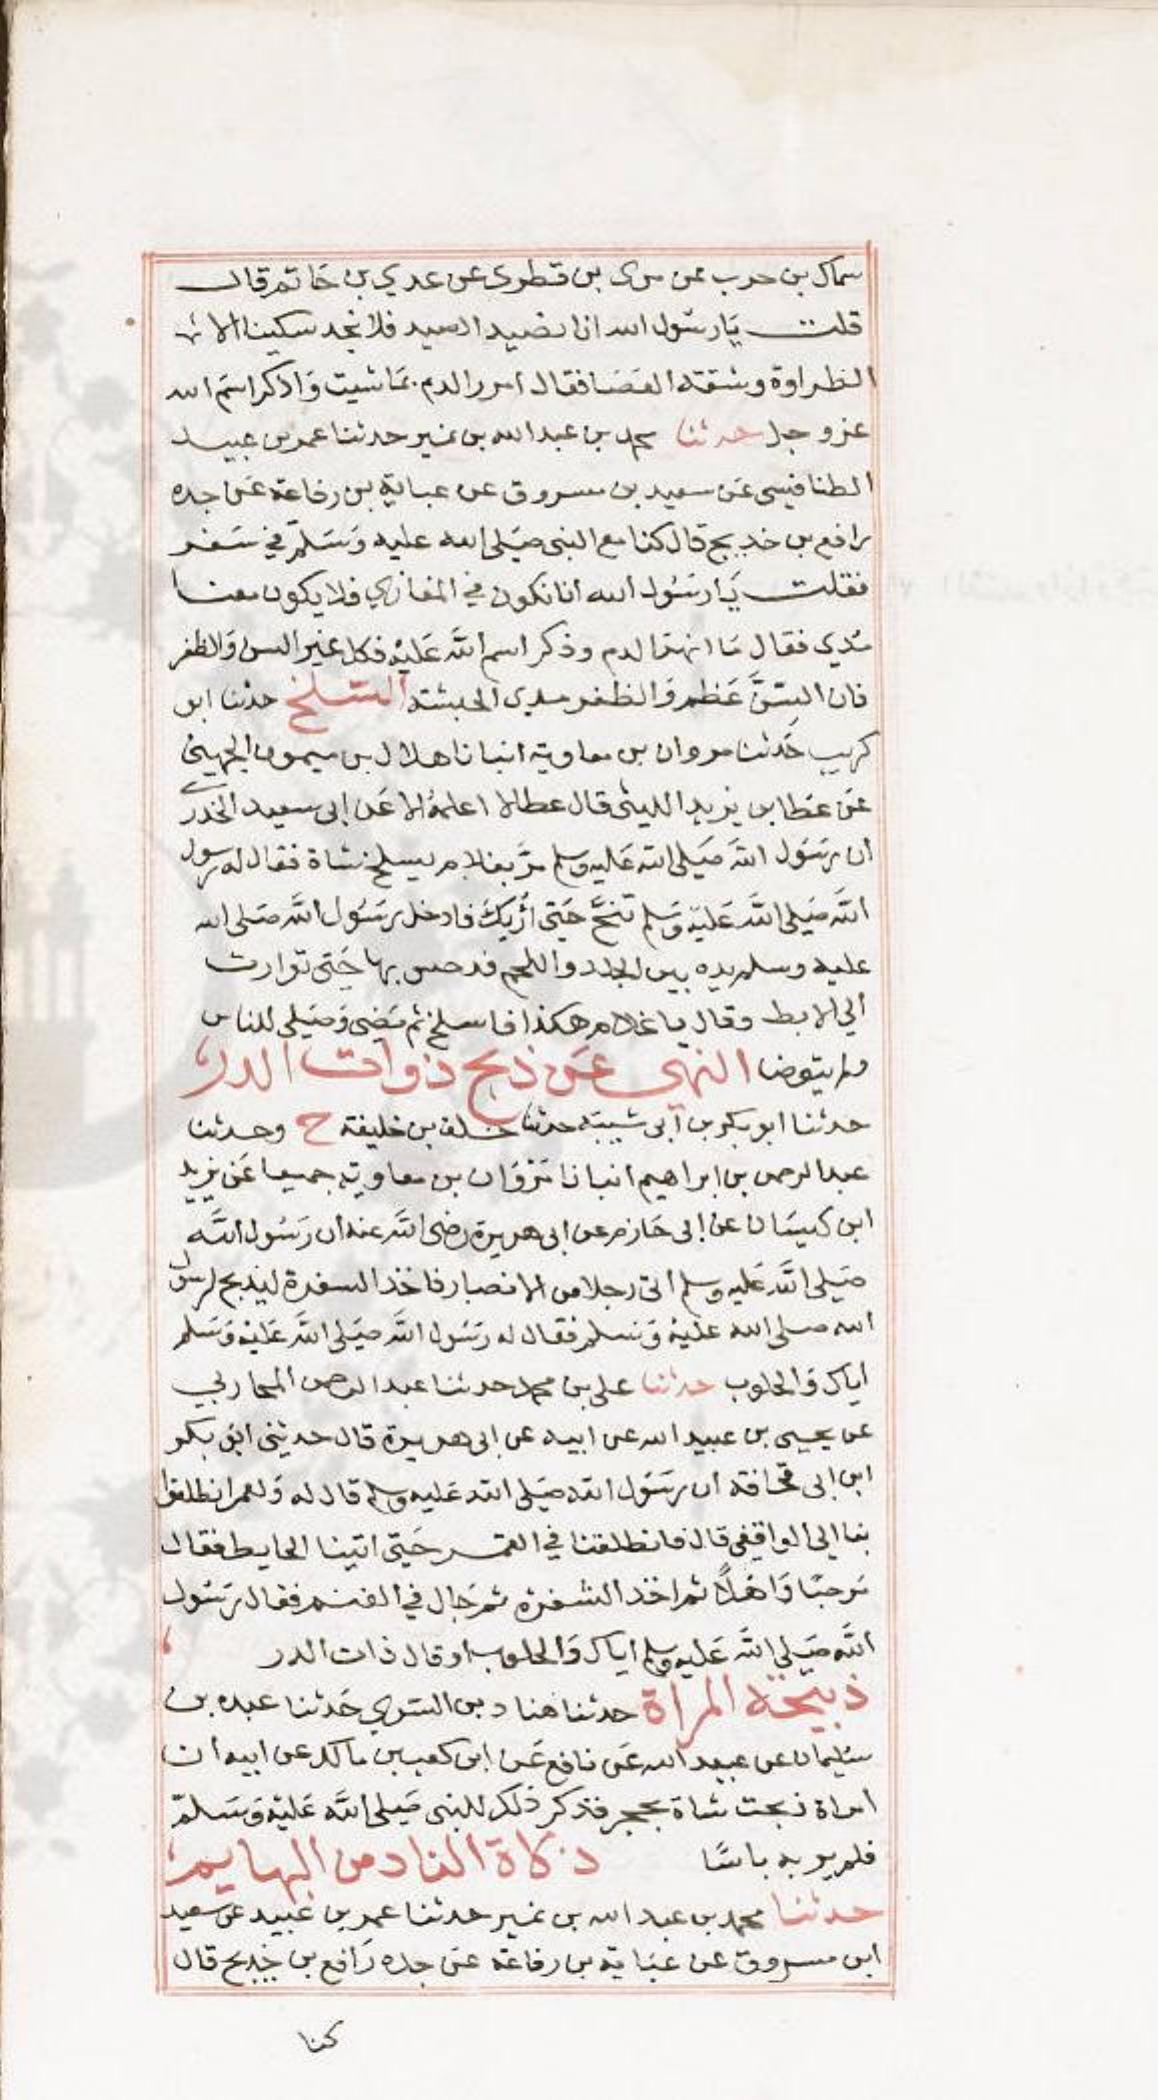 سماك بن حرب عن مرى بن قطرى عن عدي بن حاتم قال
قلت يا رسول الله انا نصيد الصيد فلا نجد سكينا الا
الظراوة وشقة العصا فقال امرر الدم بما شيت واذكر اسم الله
عز وجل حدثنا محمد بن عبد الله بن نمير حدثنا عمر بن عبيد
الطنافسي عن سعيد بن مسروق عن عباية بن رفاعة عن جده
رافع بن خديج قال كنا مع النبى صلى الله عليه وسلم في سفر
فقلت يا رسول الله انا نكون في المغازي فلا يكون معنا
مدي فقال ما انهر الدم وذكر اسم الله عليه فكل غير السن والظفر
فان السن عظم والظفر مدى الحبشة السلخ حدثنا ابو
كريب حدثنا مروان بن معاوية انبانا هلال بن ميمون الجهني
عن عطا بن يزيد الليثى قال عطا لا اعلمه الا عن ابى سعيد الخدرى
ان رسول الله صلى الله عليه وسلم مر بغلام يسلخ شاة فقال له رسول
الله صلى الله عليه وسلم تنح حتى اريك فادخل رسول الله صلى الله
عليه وسلم يده بين الجلد واللحم فدحس بها حتى توارت
الي الابط وقال يا غلام هكذا فاسلخ ثم مضى وصلى للناس
ولم يتوضا النهى عن ذبح ذوات الدر
حدثنا ابو بكر بن ابى شيبة حدثنا خلف بن خليفة ح وحدثنا
عبد الرحمن بن ابراهيم انبانا مروان بن معاوية جميعا عن يزيد
ابن كيسان عن ابى حازم عن ابى هريرة رضى الله عنه ان رسول الله
صلى الله عليه وسلم اتى رجلا من الانصار فاخذ السفرة ليذبح لرسول
الله صلى الله عليه وسلم فقال له رسول الله صلى الله عليه وسلم
اياك والحلوب حدثنا على بن محمد حدثنا عبد الرحمن المحاربي
عن يحيى بن عبيد الله عن ابيه عن ابى هريرة قال حدثنى ابو بكر
ابن ابى قحافة ان رسول الله صلى الله عليه وسلم قال له ولعمر انطلقوا
بنا الى الواقفى قال فانطلقنا في القمر حتى اتينا الحايط فقال
مرحبا واهلا ثم اخذ الشفرة ثم جال في الغنم فقال رسول
الله صلى الله عليه وسلم اياك والحلوب او قال ذات الدر
ذبيحة المراة حدثنا هناد بن السري حدثنا عبده بن
سليمان عن عبيد الله عن نافع عن ابن كعب بن مالك عن ابيه ان
امراة ذبحت شاة بحجر فذكر ذلك للنبى صلى الله عليه وسلم
فلم ير به باسا ذكاة الناد من البهايم
حدثنا محمد بن عبد الله بن نمير حدثنا عمر بن عبيد عن سعيد
ابن مسروق عن عباية بن رفاعة عن جده رافع بن خديج قال
كنا